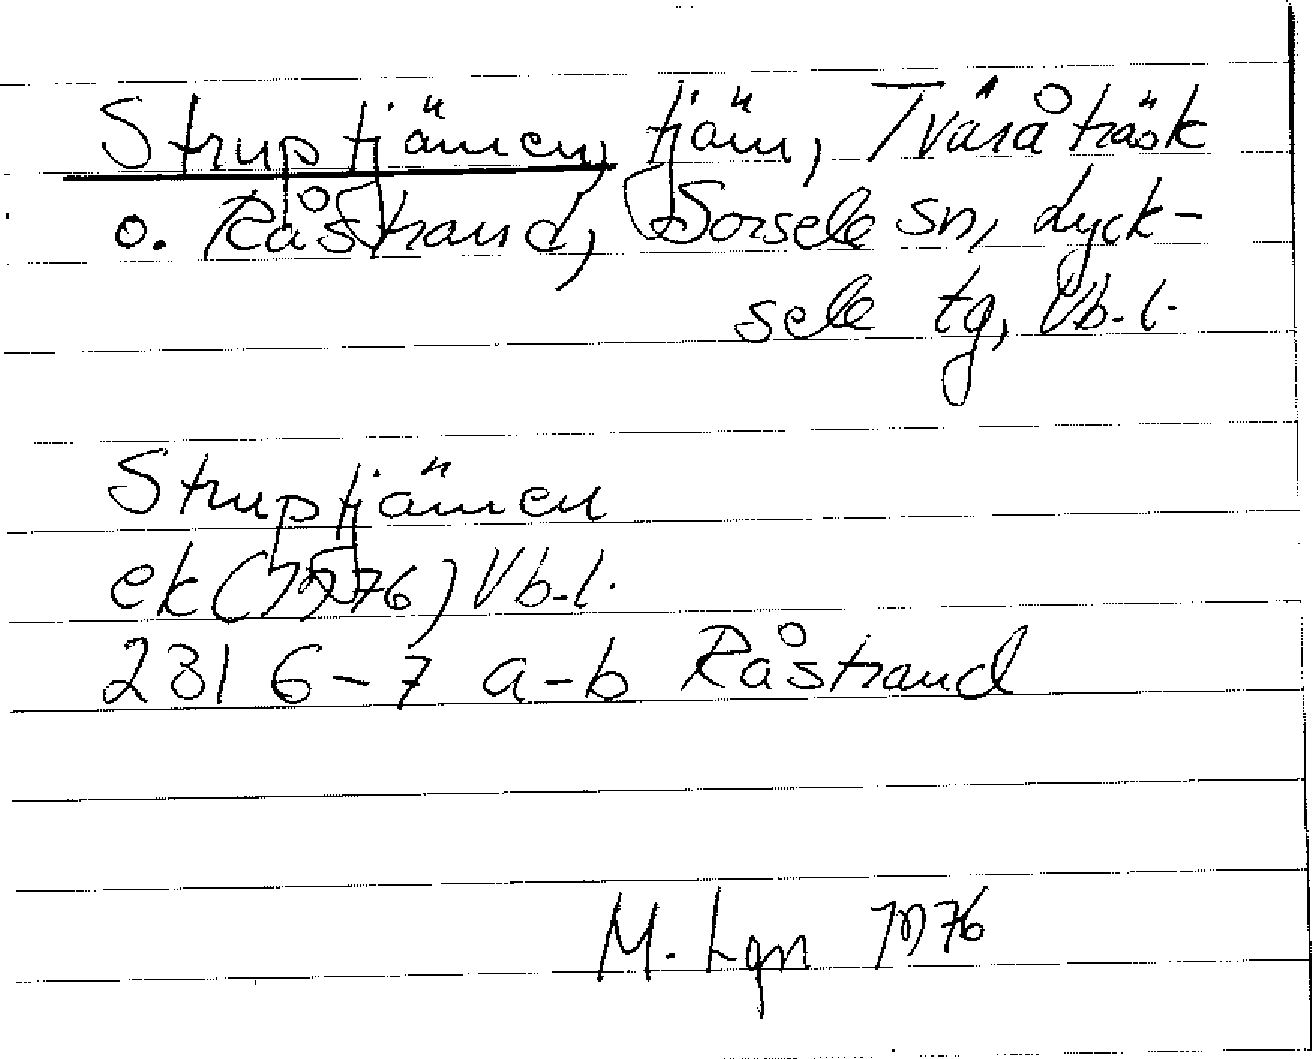 Struptjärnen, tjärn, Tväråträsk
o. Råstrand, Sorsele sn, Lyck-
sele tg, Vb.l.
Struptjärnen
ek (1976) Vb.l.
231 6-7 a-b Råstrand
M. Lgn 1976